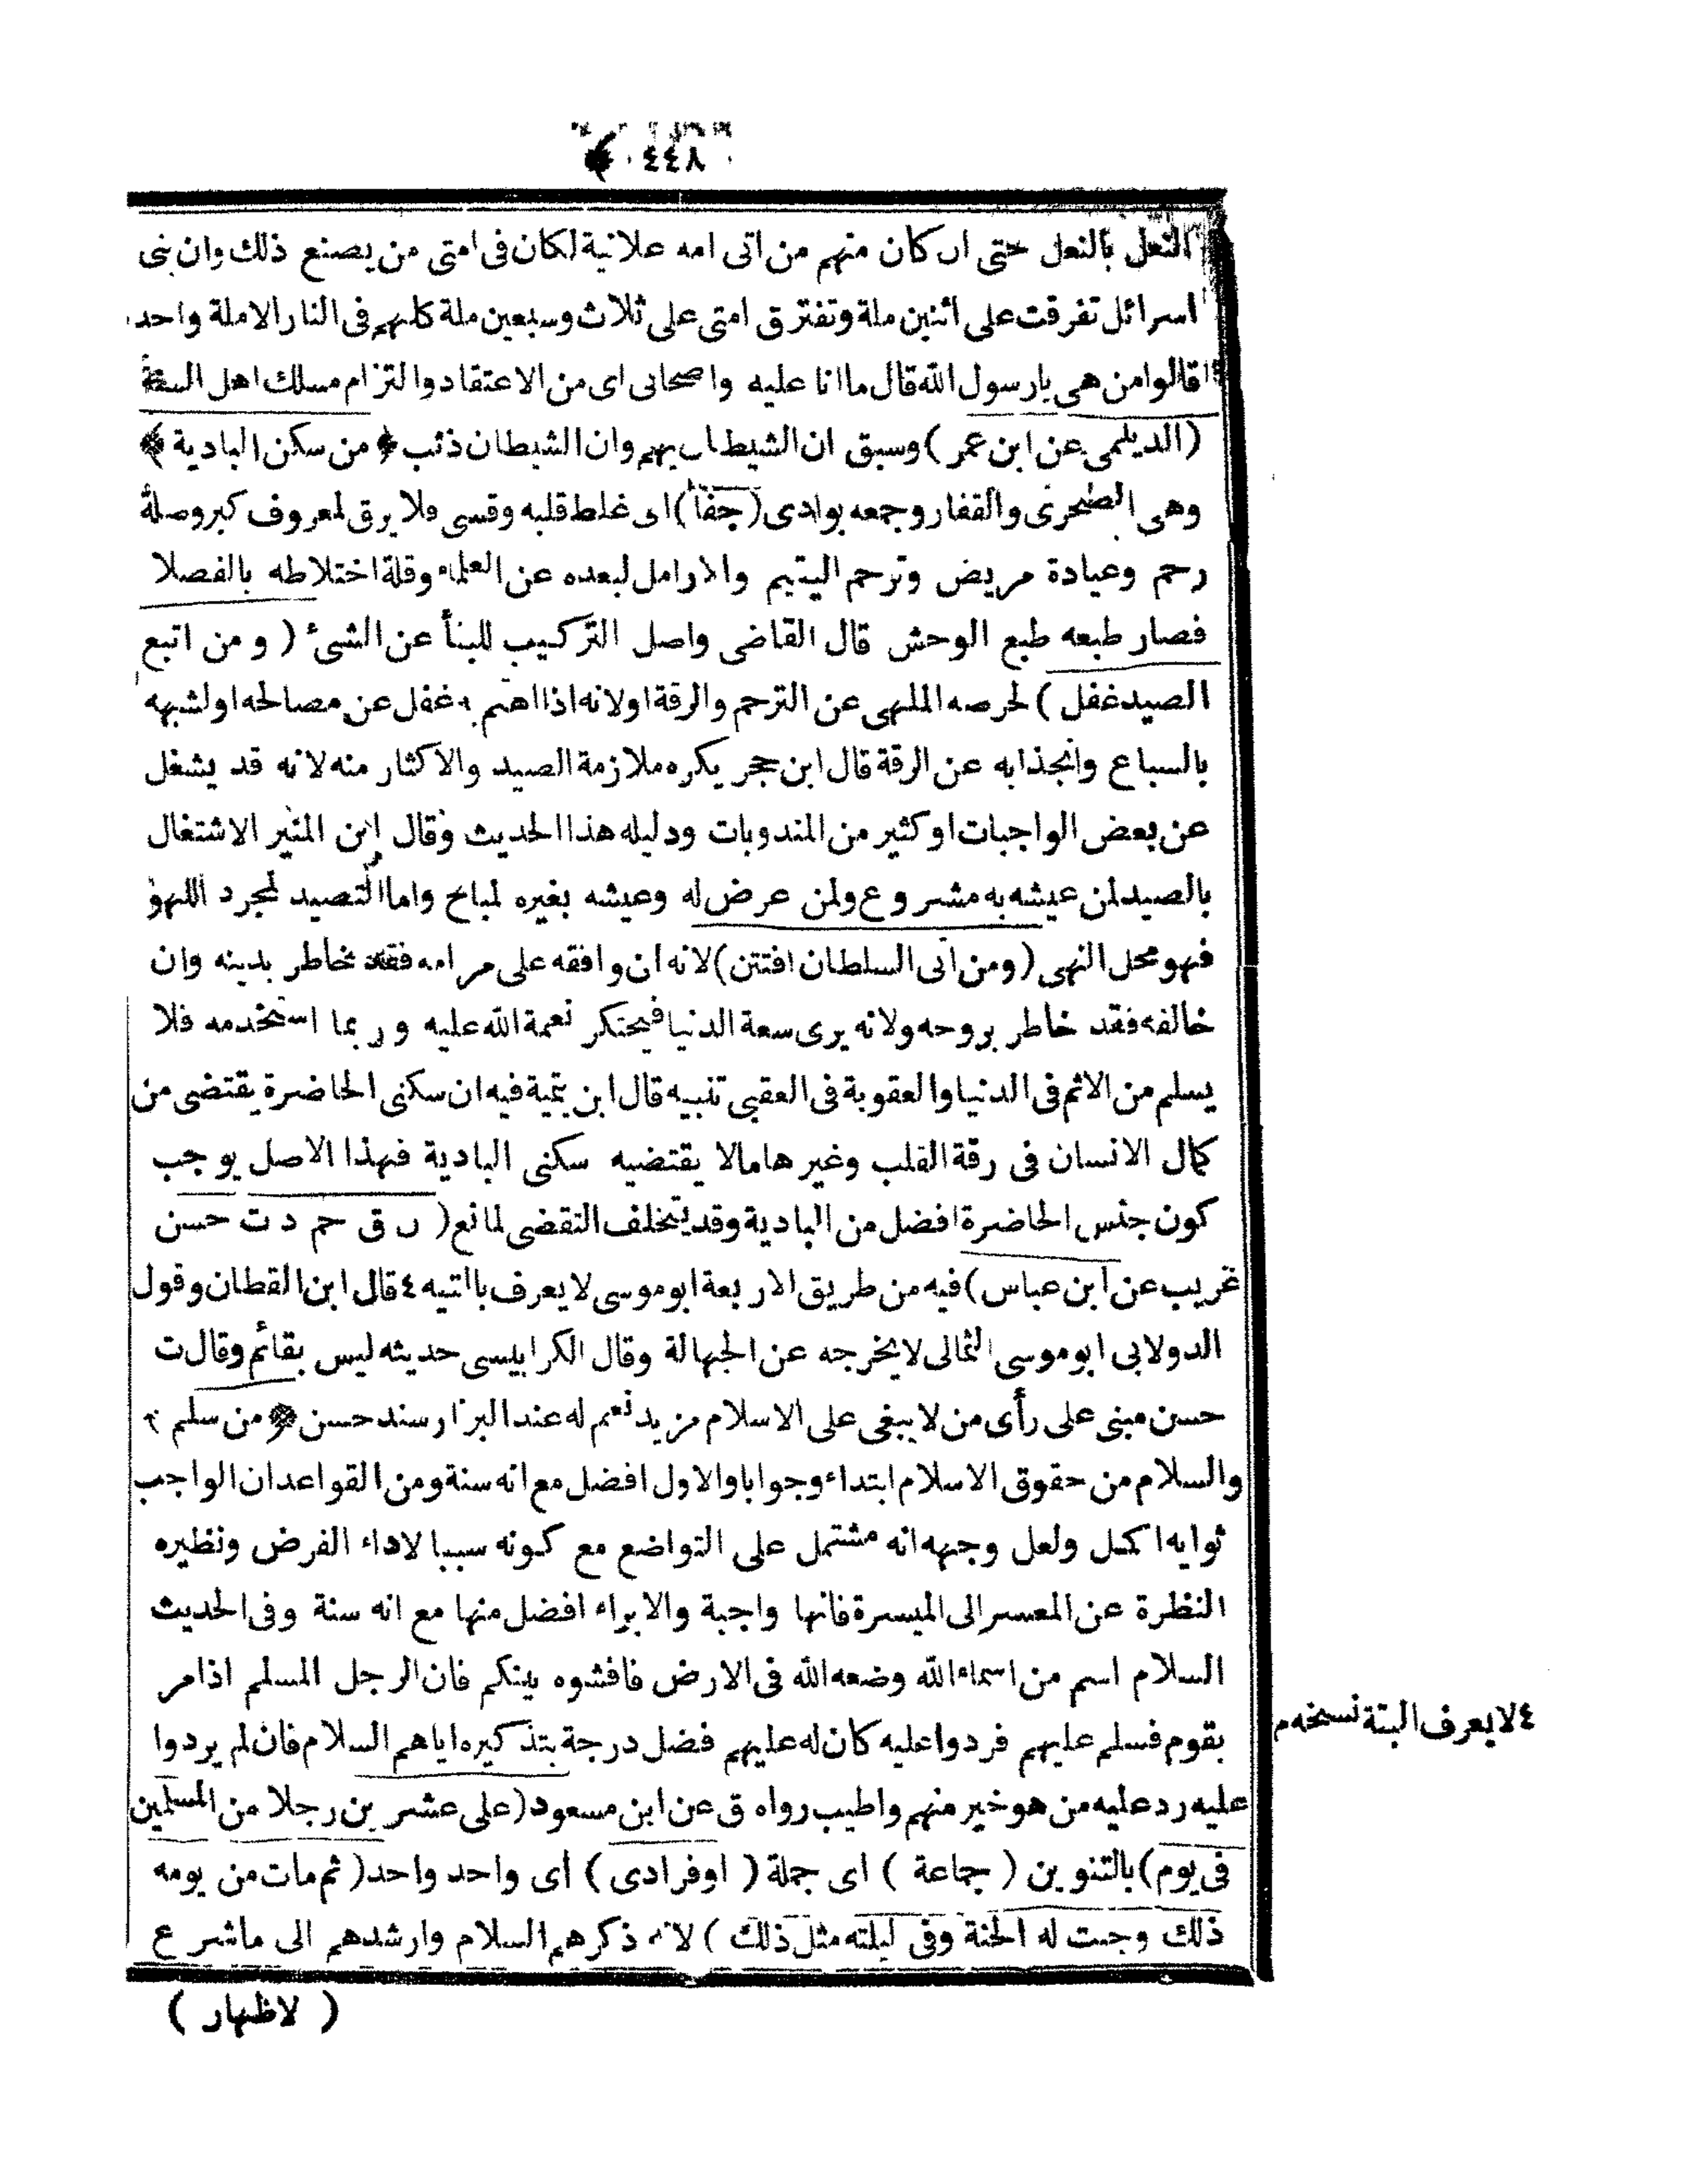 ﴿ ٤٤٨ ﴾
النعل بالنعل حتى ان كان منهم من اتى امه علانية لكان فى امتى من يصنع ذلك وان بنى
اسرائل تفرقت على اثنين ملة وتفترق امتى على ثلاث وسبعين ملة كلهم فى النار الا ملة واحدة
قالوا من هى يا رسول الله قال ما انا عليه واصحابى اى من الاعتقاد والتزام مسلك اهل السنة
(الديلمى عن ابن عمر) وسبق ان الشيطان يهم وان الشيطان ذئب ﴿من سكن البادية﴾
وهى الصحرى والقفار وجمعه بوادى (جفا) اى غلط قلبه وقسى فلا يرق لمعروف كبر وصلة
رحم وعيادة مريض وترحم اليتيم والارامل لبعده عن العلماء وقلة اختلاطه بالفصلا
فصار طبعه طبع الوحش قال القاضى واصل التركيب للبنأ عن الشىء (ومن اتبع
الصيد غفل) لحرصه الملهى عن الترحم والرقة او لانه اذا اهتم به غفل عن مصالحه او لشبهه
بالسباع وانجذابه عن الرقة قال ابن حجر يكره ملازمة الصيد والاكثار منه لانه قد يشغل
عن بعض الواجبات او كثير من المندوبات ودليله هذا الحديث وقال ابن المنير الاشتغال
بالصيد لمن عيشه به مشروع ولمن عرض له وعيشه بغيره لمباح واما التصيد لمجرد اللهو
فهو محل النهى (ومن اتى السلطان افتتن) لانه ان وافقه على مرامه فقد خاطر بدينه وان
خالفه فقد خاطر بروحه ولانه يرى سعة الدنيا فيحتكر نعمة الله عليه وربما استخدمه فلا
يسلم من الاثم فى الدنيا والعقوبة فى العقبى تنبيه قال ابن تيمية فيه ان سكنى الحاضرة يقتضى من
كمال الانسان فى رقة القلب وغيرها مالا يقتضيه سكنى البادية فهذا الاصل يوجب
كون جنس الحاضرة افضل من البادية وقد يتخلف النقضى لمانع (ن ق حم د ت حسن
غريب عن ابن عباس) فيه من طريق الاربعة ابو موسى لا يعرف باالتيه ٤ قال ابن القطان وقول
الدولابى ابو موسى الثمالى لا يخرجه عن الجهالة وقال الكرابيسى حديثه ليس بقائم وقال ت
حسن مبنى على رأى من لا يبغى على الاسلام مزيد نعم له عند البزار سند حسن ﴿من سلم﴾
والسلام من حقوق الاسلام ابتداء وجوابا والاول افضل مع انه سنة ومن القواعد ان الواجب
ثوابه اكمل ولعل وجهه انه مشتمل على التواضع مع كونه سببا لاداء الفرض ونظيره
النظرة عن المعسر الى الميسرة فانها واجبة والابراء افضل منها مع انه سنة وفى الحديث
السلام اسم من اسماء الله وضعه الله فى الارض فافشوه بينكم فان الرجل المسلم اذا مر
بقوم فسلم عليهم فردوا عليه كان له عليهم فضل درجة بتذكيره اياهم السلام فان لم يردوا
عليه رد عليه من هو خير منهم واطيب رواه ق عن ابن مسعود (على عشرين رجلا من المسلمين
فى يوم) بالتنوين (جماعة) اى جملة (او فرادى) أى واحد واحد (ثم مات من يومه
ذلك وجبت له الجنة وفى ليلته مثل ذلك) لانه ذكرهم السلام وارشدهم الى ما شرع
(لاظهار)
٤ لا يعرف البتة نسخه م